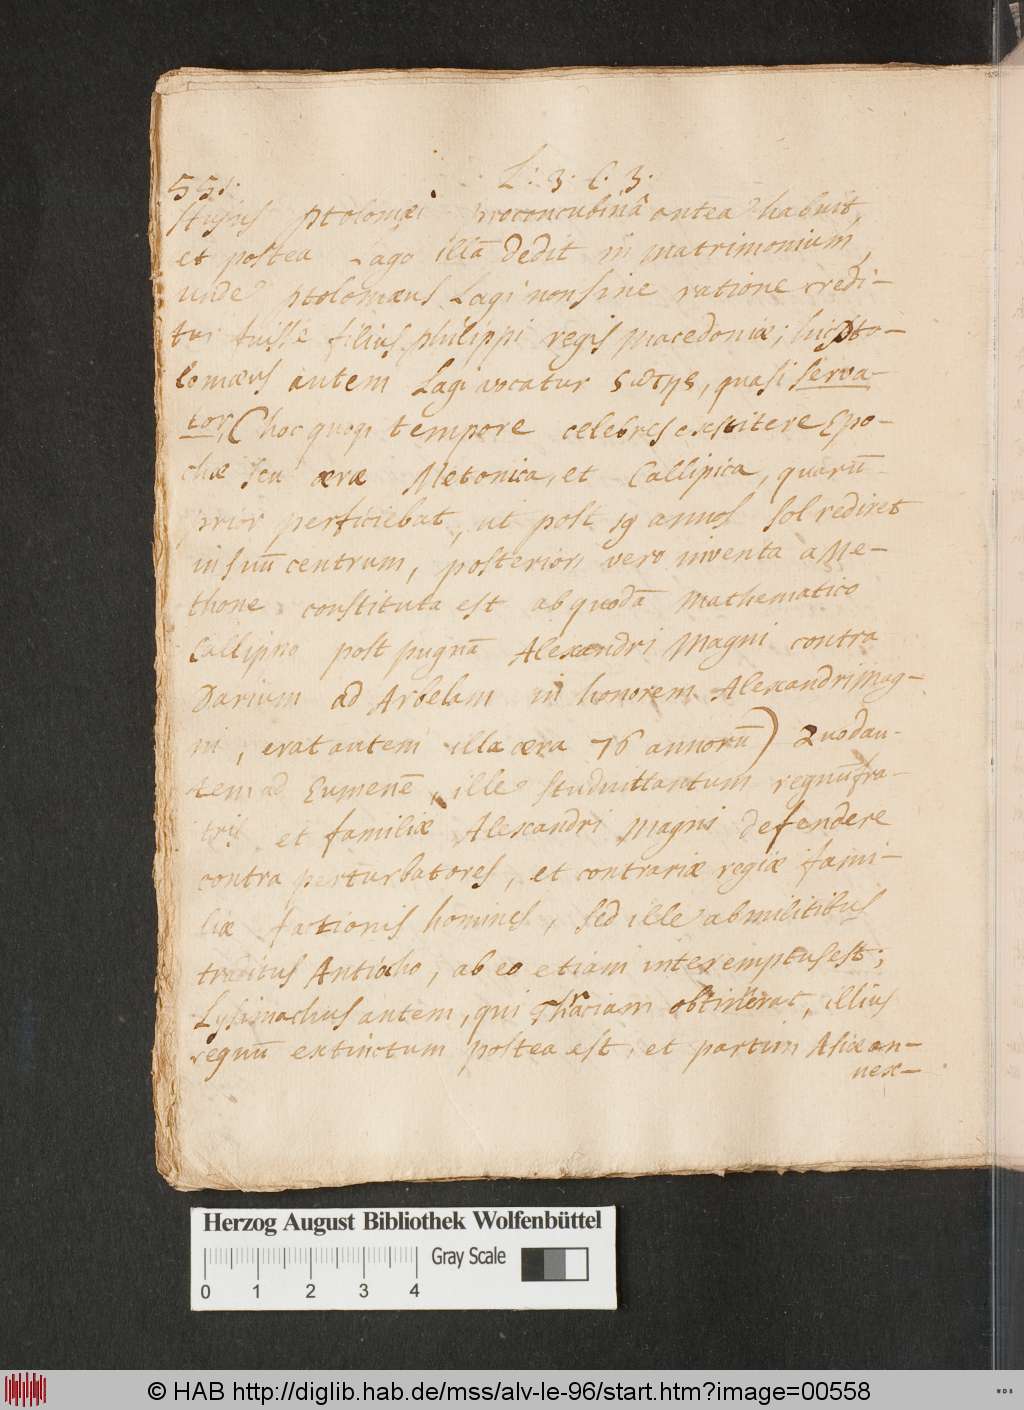 L: 3. C. 3.
551.
ptolomæi proconcubinâ antea habuit,
et postea Lago illā dedit in matrimonium,
unde ptolomæus Lagi non sine ratione credi-
tur fuisse filius philippi regis macedoniæ; hic Pto-
lomæus autem Lagi vocatur Σωτηρ, quasi serva-
tor, (hoc quoqȝ tempore celebres exstitere Epo-
chæ seu æræ Metonica, et Callipica, quarū
prior perficiebat, ut post 19 annos sol rediret
in suū centrum, posterior vero inventa a Me-
thone constituta est ab quodā Mathematico
Callipno post pugnā Alexandri Magni contra
Darium ad Arbelam in honorem Alexandri Mag-
ni, erat autem illa æra 76 annorū) Quod au-
tem ad Eumenē, ille studuit tantum regnū fra-
tris et familiæ Alexandri Magni defendere
contra perturbatores, et contrariæ regiæ fami-
liæ factionis homines, sed ille ab militibus
traditus Antiocho, ab eo etiam interemptus est;
Lysimachus autem, qui Thraciam obtinerat, illius
regnū extinctum postea est, et partim Asiæ an-
nex-
Herzog August Bibliothek Wolfenbüttel
Gray Scale
0 1 2 3 4
© HAB http://diglib.hab.de/mss/alv-le-96/start.htm?image=00558